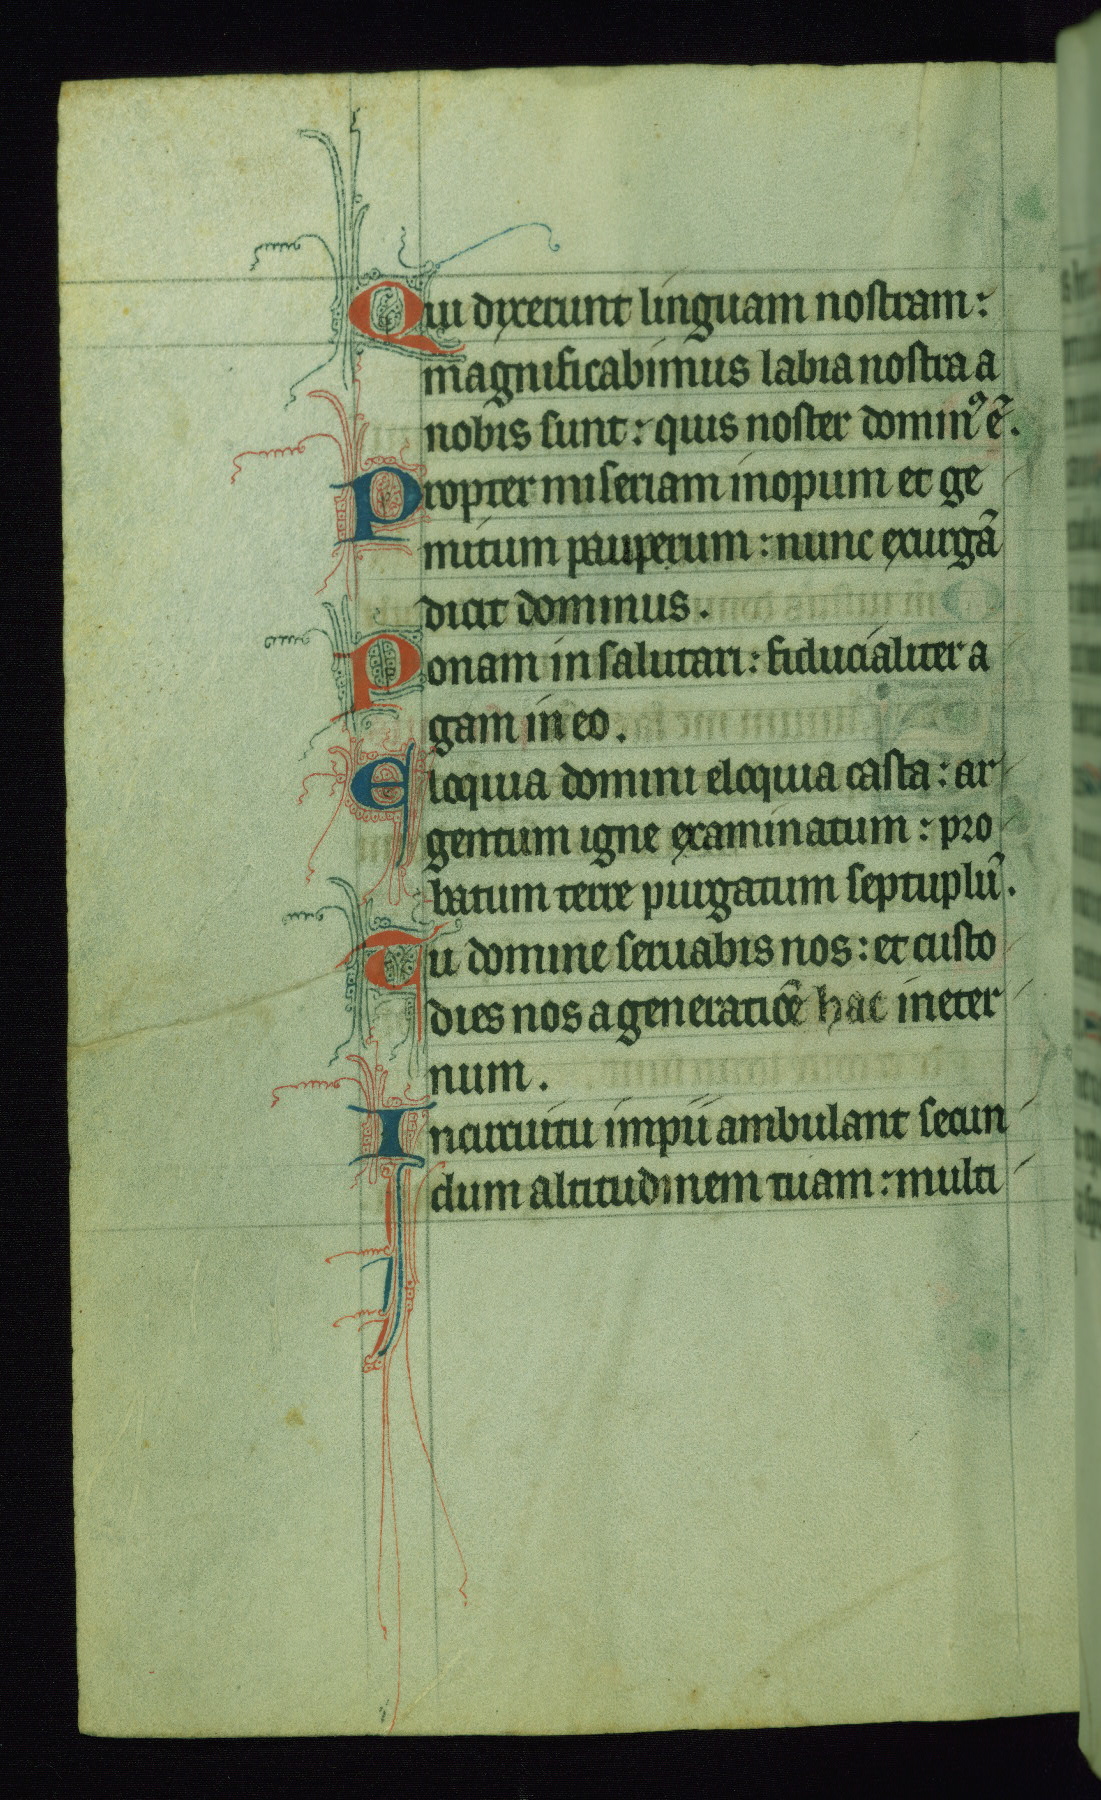 Qui dixerunt linguam nostram:
magnificabimus labia nostra a
nobis sunt: quis noster domin⁹ ē.
Propter miseriam inopum et ge
mitum pauperum: nunc exurgā
dicit dominus.
Ponam in salutari: fiducialiter a
gam in eo.
Eloquia domini eloquia casta: ar
gentum igne examinatum: pro
batum terre purgatum septuplū.
Tu domine seruabis nos: et custo
dies nos a generatiōe hac in eter
num.
In circuitu impii ambulant secun
dum altitudinem tuam: multi